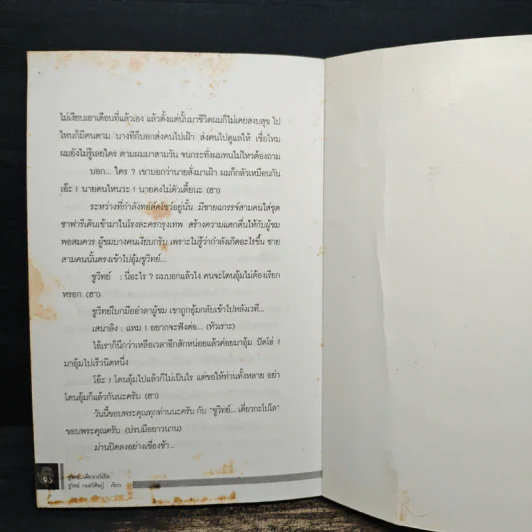 ไม่เงียบเอาเดือนที่แล้วเอง แล้วตั้งแต่นั้นมาชีวิตผมก็ไม่เคยสงบสุข ไป
ไหนก็มีคนตาม บางทีก็บอกส่งคนไปเฝ้า ส่งคนไปดูแลให้ เชื่อไหม
ผมยังไม่รู้เลยใคร ตามผมมาสามวัน จนกระทั่งผมทนไม่ไหวต้องถาม
บอก... ใคร ? เขาบอกว่านายสั่งมาเฝ้า ผมก็กลัวเหมือนกัน
เอ๊ะ ! นายคนไหนวะ ! นายคงไม่ตัวเตี้ยนะ (ฮา)
ระหว่างที่กำลังทอล์คโชว์อยู่นั้น มีชายฉกรรจ์สามคนใส่ชุด
ซาฟารีเดินเข้ามาในโรงละครกรุงเทพ สร้างความแตกตื่นให้กับผู้ชม
พอสมควร ผู้ชมบางคนเงียบกริบ เพราะไม่รู้ว่ากำลังเกิดอะไรขึ้น ชาย
สามคนนั้นตรงเข้าไปอุ้มชูวิทย์...
ชูวิทย์ : นี่อะไร ? ผมบอกแล้วไง คนจะโดนอุ้มไม่ต้องเรียก
หรอก (ฮา)
ชูวิทย์โบกมืออำลาผู้ชม เขาถูกอุ้มกลับเข้าไปหลังเวที...
เสนาลิง : แหม ! อยากจะฟังต่อ... (หัวเราะ)
ไอ้เราก็นึกว่าเหลือเวลาอีกสักหน่อยแล้วค่อยมาอุ้ม ปัดโธ่ !
มาอุ้มไปเร็วนิดหนึ่ง
โอ๊ะ ! โดนอุ้มไปแล้วก็ไม่เป็นไร แต่ขอให้ท่านทั้งหลาย อย่า
โดนอุ้มก็แล้วกันนะครับ (ฮา)
วันนี้ขอบพระคุณทุกท่านนะครับ กับ "ชูวิทย์... เดี่ยวกะโปโล"
ขอบพระคุณครับ (ปรบมือยาวนาน)
ม่านปิดลงอย่างเชื่องช้า...
ชูวิทย์ กมลวิศิษฎ์ : เขียน